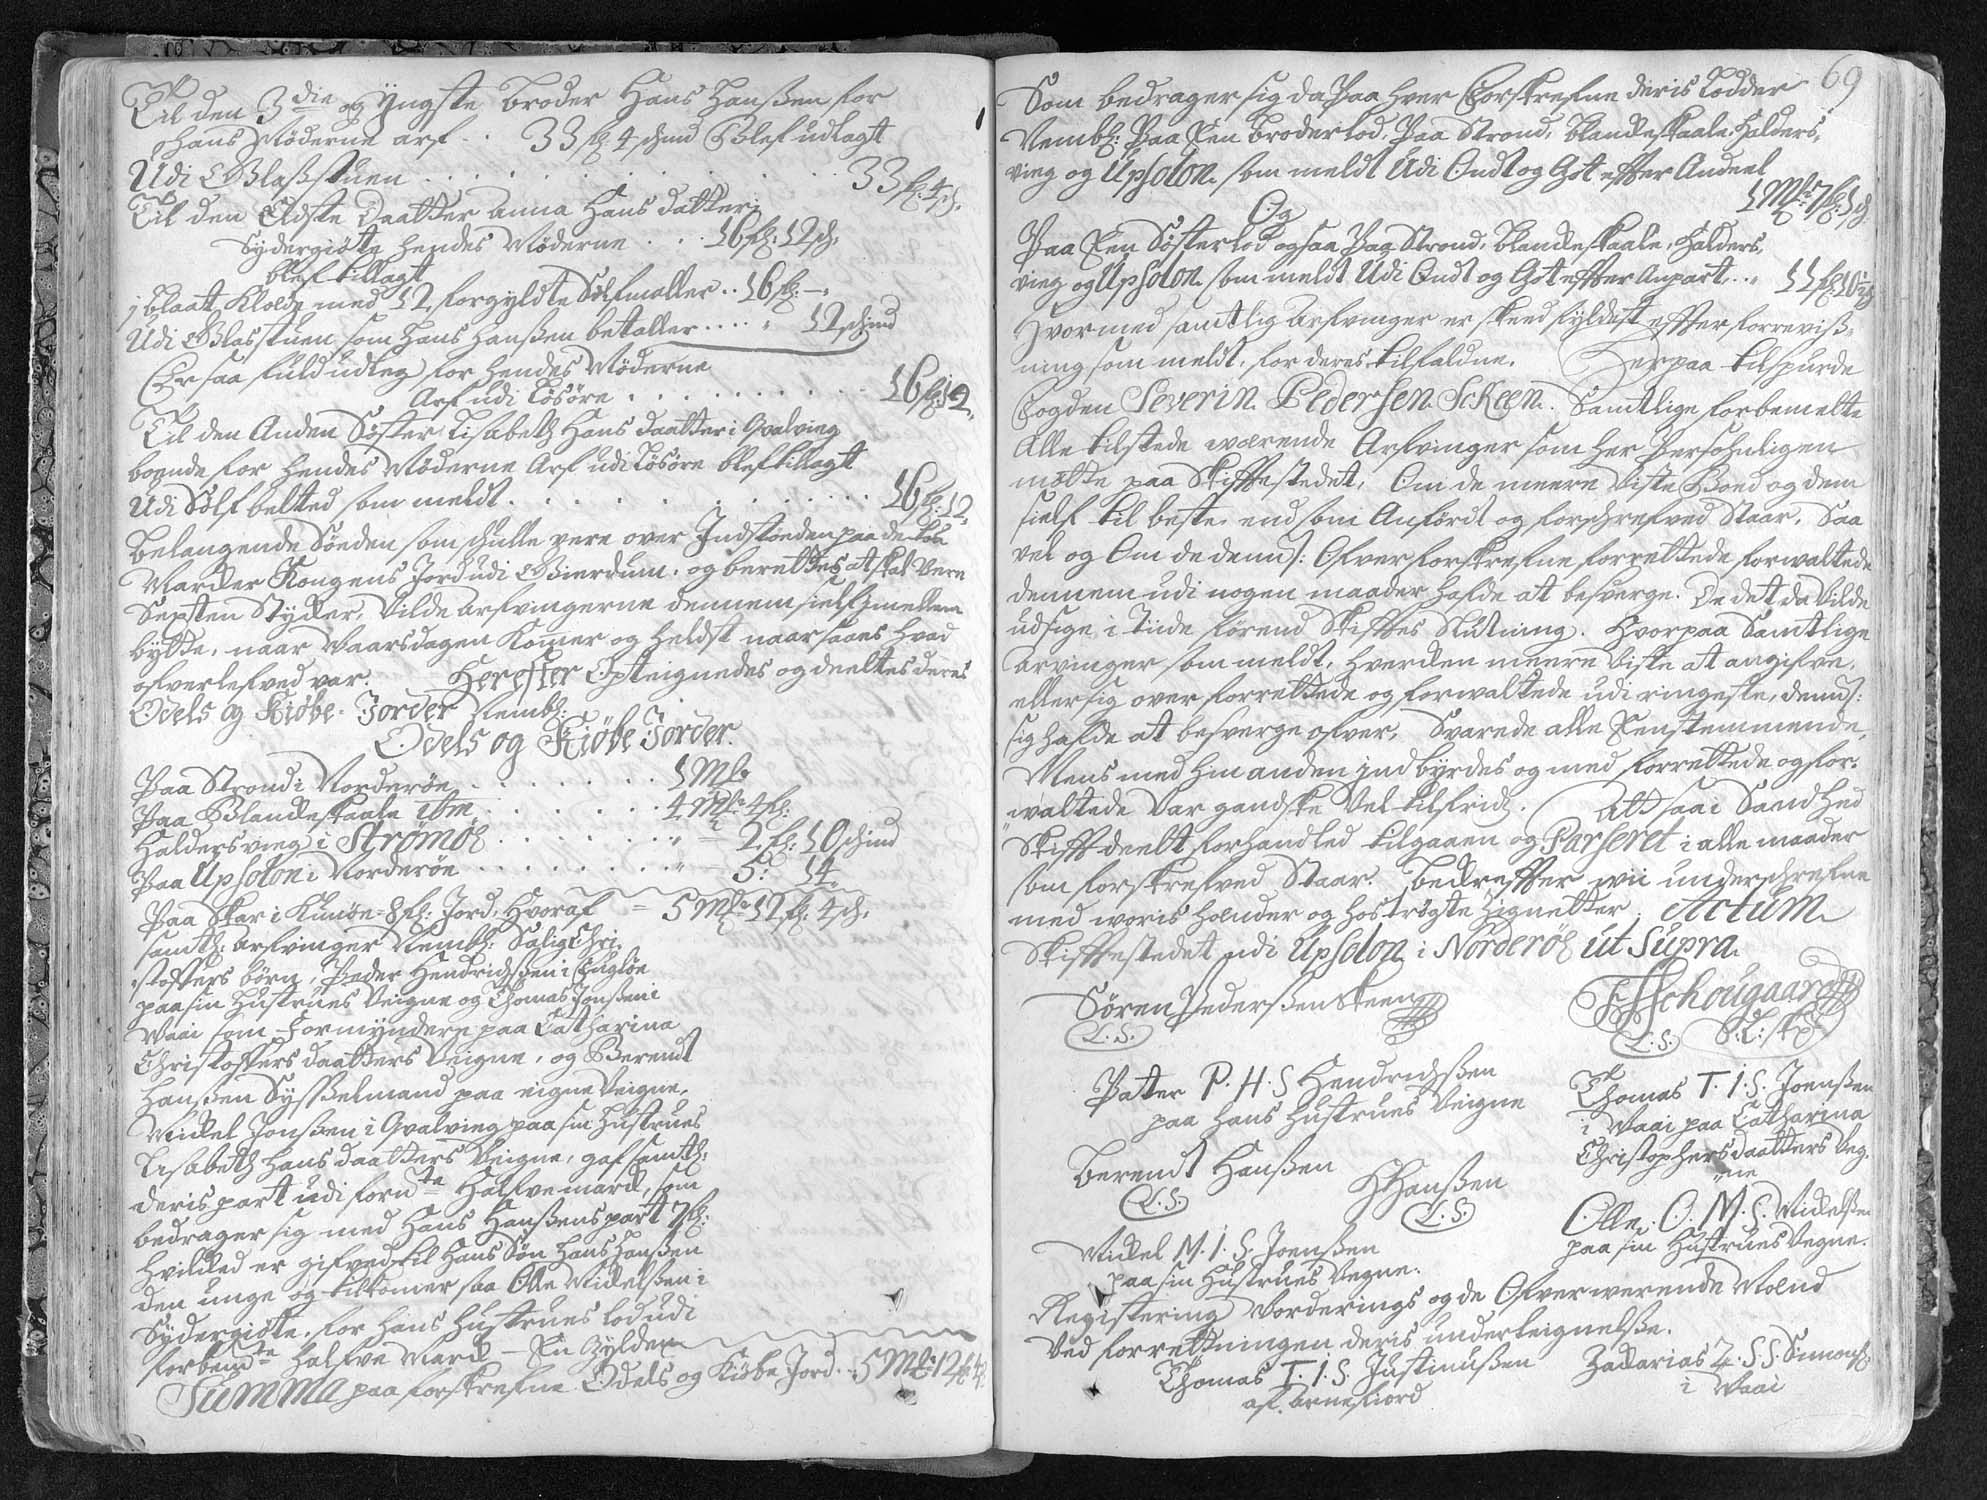 Til den 3die og Yngste broder Hans Hanßen for
Hans Møderne arf . . 33 fl: 4 schind Blef udlagt
Udi Glasstuen . . . . . . . . . . . . 33 fl: 4 s.
Til den Eldste Daatter Anna Hans datter i
Sydergiøte hendes Møderne . . . 16 fl: 12 sch.
blef tillagt
1 blaat Klæde med 12 forgyldte Sølfmaller . . 16 fl: —
Udi Glasstuen som Hans Hanßen betaller . . . . " 12 schind
Er saa fuld udleg for hendes Møderne
Arf udi Løsøre . . . . . . . . . . 16 fl: 12.
Til den Anden Søster Lisabeth Hans daatter i Qvalvieg
boende for hendes Møderne Arf udi Løsøre blef tillagt
Udi Sølf belted som meldt . . . . . . . . . . . 16 fl: 12.
Belangende Søeden som schulle vere over Indstæden paa de
Marker Kongens Jord udi Gierdum. og berettes at skal Vere
Sexsten Stycker, Vilde arfvingerne dennem sielf imellem
bytte, naar Vaarsdagen Komer og heldst naar saaes hvad
ofverlefved var. Herefter Opteignedes og deeltes deres
Odels og Kiøbe Jorder Nembl:
Odels og Kiøbe Jorder.
Paa Strond i Norderøe . . . . . . . 1 Mk
Paa Blanckeskaale ibm . . . . . . 4 Mk 4 fl:
Haldersvieg i Strømøe . . . . . . " – 2 fl: 10 schind
Paa Upsolon i Norderøe . . . . . . " – 5: 14.
Paa Skar i Kunøe = 8 fl: Jord, Hvoraf = 5 Mk 12 fl: 4 sch.
samtl: arfvinger Nembl: Salig Chri-
stoffers børn, Peder Hendrichsßen i Fugløe
paa sin Hustrues Veigne og Thomas Jonßen i
Vaai som Formyndere paa Catharina
Christoffers daatters Veigne, og Berendt
Hanßen Sysselmand paa eigne Veigne,
Mickel Jonßen i Qvalvieg paa sin Hustrues
Lisabeth Hans daatters Veigne, gaf samtl:
deris part udi fornte Halfve marck, som
bedrager sig med Hans Hanßens part 7 fl:
hvilcked er gifved til Hans Søn Hans Hanßen
den unge og tilkomer saa Olle Mickelßen i
Sydergiøte, for hans hustrues lod udi
forbemte Halfve Marck – En Gylden
Summa paa forskrefne Odels og Kiøbe Jord . . 5 Mk: 12 fl: 4
69
Som bedrager sig da Paa hver Forskrefne deris Lodder
Nembl: Paa Een broderlod, Paa Strond, Blanckeskaale, Halders-
vieg og Upsolon som meldt Udi Ondt og Got effter Andeel
1 Mk: 7 fl: 1 s
Og
Paa Een Søsterlod ogsaa Paa Strond, Blanckeskaale, Halders-
vieg og Upsolon som meldt Udi Ondt og Got effter Anpart . . " 11 fl: 10½ s
Hvormed samtlig arfvinger er skeed fyldest effter forreviß-
ning som meldt, for deres tilfaldne. Derpaa tilspurde
Fogden Severin Pedersen Scheen. Samtlige forbemelte
Alle tilstede wærende Arfvinger som her Persohnligen
møtte paa Skifftestedet, Om de meere Viste Boed og dem
sielf til beste, end som Anførdt og forschrefved Staar, Saa
vel og Om de denns: Ofver forskrefne forrettede forwaltede
dennem udi nogen maader hafde at besverge. De det da Vilde
udsige i Tiide førend Skifftes Slutning. Hvorpaa Samtlige
arvinger som meldt, hverken meere Viste at angifve,
eller sig over forrettede og forwaltede udi ringeste, denns:
sig hafde at besverge ofver, Svarede alle Eenstemmende,
Mens med hinanden indbyrdes og med forrettede og for-
waltede Var gandske Vel tilfridz. Att saa i Sandhed
Skifft deelt forhandled tilgaaen og Passeret i alle maader
som forskrefved Staar. Bekreffter wii underschrefne
med woris hænder og hostrøgte Zignetter. Actum
Skifftestedet udi Upsolon i Norderøe ut Supra.
Søren Pederßen Skeen
L. S.
FSchougaard
L. S. S: L: skr
Patter P. H. S Hendrichsßen
paa Hans Hustrues Veigne
Thomas T. I. S. Joenßen
i Vaai paa Catharina
Christophersdaatters Veg-
ne
Berendt Hanßen
L. S.
HHanßen
L. S.
Olle O. M. S. Mickelßen
paa sin Hustrues Vegne.
Mickel M. I. S. Joenßen
paa sin Hustrues Vegne.
Registering Vorderings og de Ofverwerende Mænd
Ved forrettningen deris underteignelße.
Thomas T. I. S. Justinußen
af Arnefiord
Zackarias Z. S. S. Simonß:
i Vaai